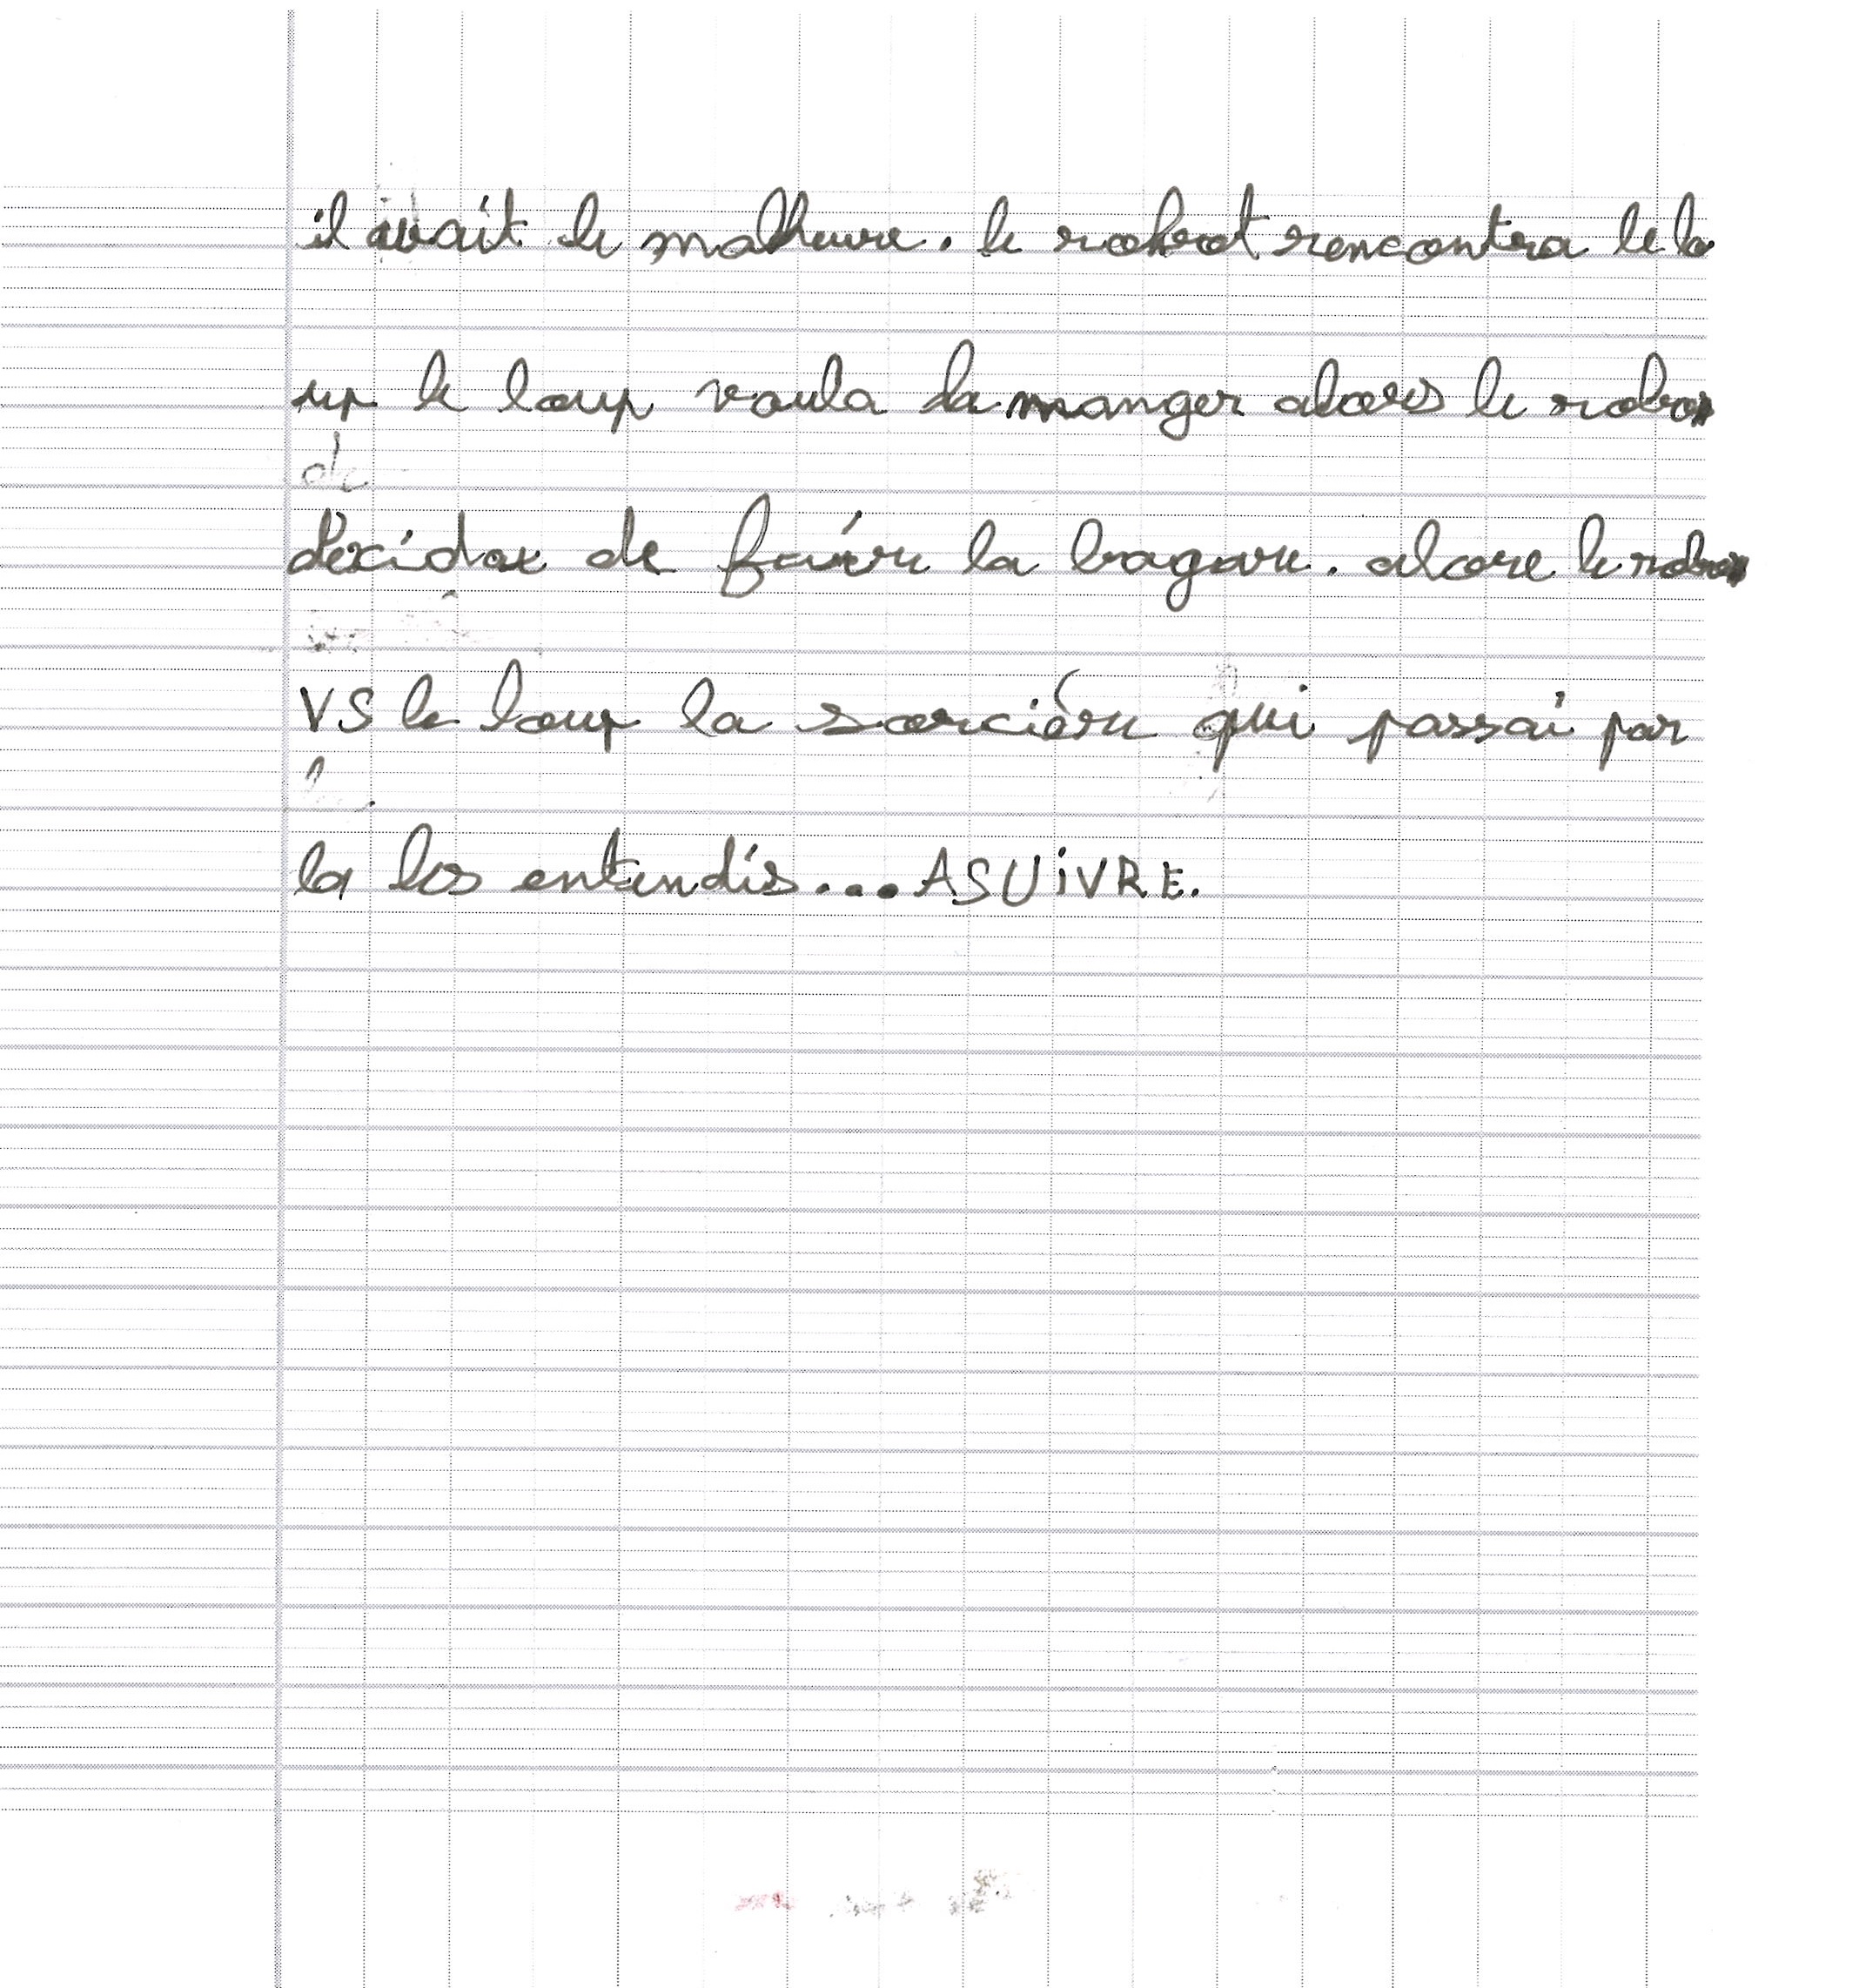 il avait de malheure. le robot rencontra le lo
up le loup voula la manger alors le robo
décida de faire la bagare. alore le robo
VS le loup la sorcière qui passai par
la les entendis.... ASUiVRE.